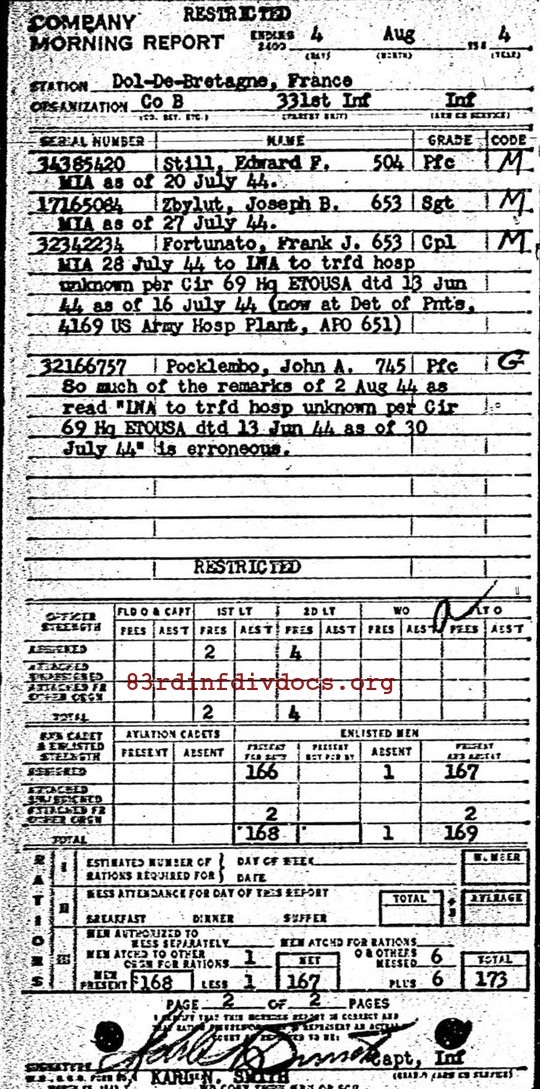 COMPANY RESTRICTED
MORNING REPORT ENDING 2400 4 Aug 194 4
(DAY) (MONTH) (YEAR)
STATION Dol-De-Bretagne, France
ORGANIZATION Co B 331st Inf Inf
(CO. BET. ETC.) (PARENT UNIT) (ARM OR SERVICE)
SERIAL NUMBER NAME GRADE CODE
34385420 Still, Edward F. 504 Pfc M
MIA as of 20 July 44.
17165084 Zbylut, Joseph B. 653 Sgt M
MIA as of 27 July 44.
32342234 Fortunato, Frank J. 653 Cpl M
MIA 28 July 44 to LWA to trfd hosp
unknown per Cir 69 Hq ETOUSA dtd 13 Jun
44 as of 16 July 44 (now at Det of Pnts,
4169 US Army Hosp Plant, APO 651)
32166757 Pocklembo, John A. 745 Pfc G
So much of the remarks of 2 Aug 44 as
read "LWA to trfd hosp unknown per Cir
69 Hq ETOUSA dtd 13 Jun 44 as of 30
July 44" is erroneous.
RESTRICTED
OFFICER STRENGTH FLD O & CAPT 1ST LT 2D LT WO FLT O
PRES ABS'T PRES ABS'T PRES ABS'T PRES ABS'T PRES ABS'T
ASSIGNED 2 4
ATTACHED UNASSIGNED
ATTACHED FR OTHER ORGN
83rdinfdivdocs.org
TOTAL 2 4
AVN CADET & ENLISTED STRENGTH AVIATION CADETS ENLISTED MEN
PRESENT ABSENT PRESENT FOR DUTY PRESENT NOT FOR DY ABSENT PRESENT AND ABSENT
ASSIGNED 166 1 167
ATTACHED UNASSIGNED
ATTACHED FR OTHER ORGN 2 2
TOTAL 168 1 169
RATIONS
I ESTIMATED NUMBER OF RATIONS REQUIRED FOR DAY OF WEEK NUMBER
DATE
II MESS ATTENDANCE FOR DAY OF THIS REPORT TOTAL ÷3 AVERAGE
BREAKFAST DINNER SUPPER
III MEN AUTHORIZED TO MESS SEPARATELY MEN ATCHD FOR RATIONS
MEN ATCHD TO OTHER ORGN FOR RATIONS 1 NET O & OTHERS MESSED 6 TOTAL
MEN PRESENT 168 LESS 1 167 PLUS 6 173
PAGE 2 OF 2 PAGES
I CERTIFY THAT THIS MORNING REPORT IS CORRECT AND
SIGNATURE Capt, Inf
KARL N. SMITH (GRADE & ARM OR SERVICE)